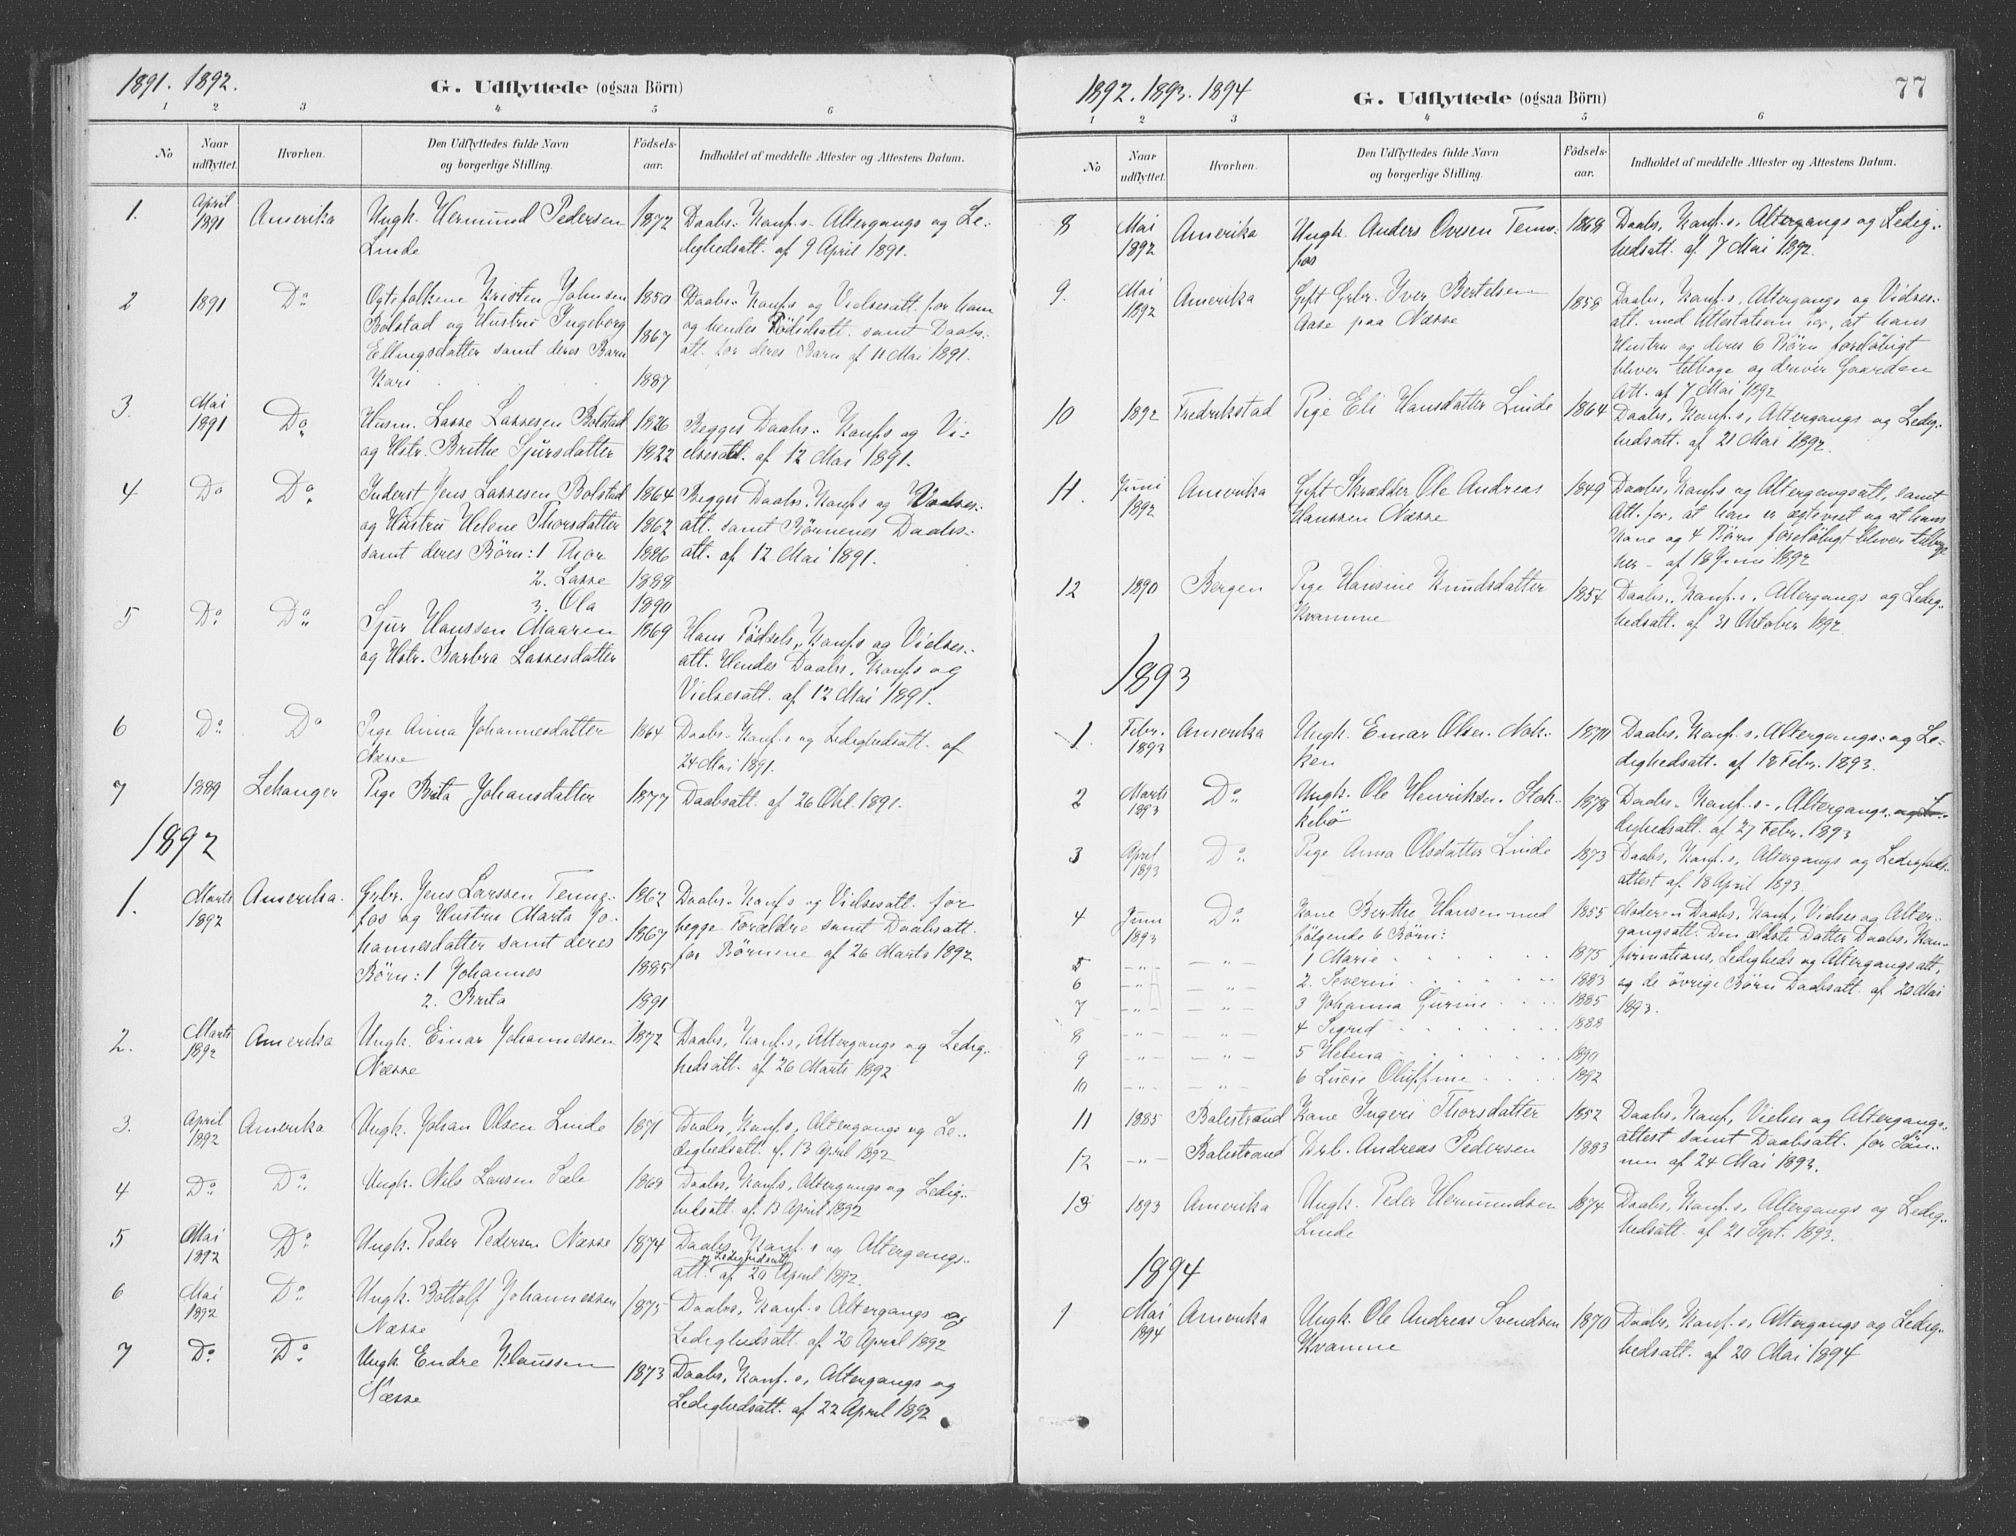 1891. 1892.
G. Udflyttede (ogsaa Börn)
1 2 3 4 5 6
No
Naar udflyttet.
Hvorhen.
Den Udflyttedes fulde Navn og borgerlige Stilling.
Födsels-aar.
Indholdet af meddelte Attester og Attestens Datum.
1. April Ungk. Hermund Pedersen 1872 Daabs- Konf.s- Altergangs og Le-
1891 Amerika Linde dighedsatt. af 9 April 1891.
2 1891 Do Ogtefolkene Kristen Johnsen 1850 Daabs- Konf.s og Vielsesatt. for ham
Bolstad og Hustru Ingeborg 1867 og hendes Födselsatt. samt Daabs-
Ellingsdatter samt deres Barn att. for deres Barn af 11 Mai 1891.
Kari 1887
3. Mai 1891 Do Husm. Lasse Lassesen Bolstad 1826 Begges Daabs- Konf.s og Vi-
og Hstr. Brithe Sjursdatter 1822 elsesatt. af 12 Mai 1891.
4 Do Do Inderst Jens Lassesen Bolstad 1864 Begges Daabs- Konf.s og Vielses-
og Hustru Helene Thorsdatter 1862 att. samt Börnenes Daabs-
samt deres Börn: 1 Thor 1886 att. af 12 Mai 1891.
2. Lasse 1888
3. Ola 1890
5 Do Do Sjur Hanssen Maaren 1869 Hans Födsels, Konf.s og Vielses-
og Hstr. Barbra Lassesdatter att. Hendes Daabs, Konf.s og
Vielsesatt. af 12 Mai 1891.
6 Do Do Pige Anna Johannesdatter 1864 Daabs- Konf.s og Ledighedsatt. af
Næsse 24 Mai 1891.
7 1889 Lekanger Pige Brita Johansdatter 1877 Daabsatt. af 26 Okt. 1891.
1892
1. Marts 1892 Amerika. Grbr. Jens Larssen Teng- 1862 Daabs- Konf.s og Vielsesatt. for
fos og Hustru Marta Jo- 1867 begge Forældre samt Daabsatt.
hannesdatter samt deres for Börnene af 26 Marts 1892
Börn: 1 Johannes 1885
2. Brita 1891
2. Marts 1892 Amerika Ungk. Einar Johannessen 1872 Daabs, Konf.s, Altergangs og Ledig-
Næsse hedsatt. af 26 Marts 1892
3. April 1892 Amerika Ungk. Johan Olsen Linde 1871 Daabs, Konf.s, Altergangs og Le-
dighedsatt. af 13 April 1892
4 Do Do Ungk. Nils Larsen Sæle 1869 Daabs, Konf.s, Altergangs og Ledig-
hedsatt. af 13 April 1892
5 Mai 1892 Do Ungk. Peder Pedersen Næsse 1874 Daabs, Konf.s og Altergangs-
og Ledighedsatt.
att. af 20 April 1892.
6 Mai 1892 Do Ungk. Bottolf Johannessen 1875 Daabs, Konf.s Altergangs og
Næsse Ledighedsatt. af 20 April 1892
7 Do Do Ungk. Endre Klaussen 1873 Daabs, Konf.s, Altergangs og
Næsse Ledighedsatt. af 22 April 1892
1892. 1893. 1894
G. Udflyttede (ogsaa Börn)
77
1 2 3 4 5 6
No
Naar udflyttet.
Hvorhen.
Den Udflyttedes fulde Navn og borgerlige Stilling.
Födsels-aar.
Indholdet af meddelte Attester og Attestens Datum.
8 Mai 1892 Amerika Ungk. Anders Ovesen Tenns- 1868 Daabs, Konf.s, Altergangs og Ledig-
fos hedsatt. af 7 Mai 1892.
9. Mai 1892 Amerika Gift Grbr. Iver Bertelsen 1858 Daabs, Konf.s, Altergangs og Vielses-
Aase paa Næsse att. med Attestation for, at hans
Hustru og deres 6 Börn forelöbigt
bliver tilbage og driver Gaarden
Att. af 7 Mai 1892
10 1892 Fredrikstad Pige Eli Hansdatter Linde 1864 Daabs, Konf.s, Altergangs og Ledig-
hedsatt. af 21 Mai 1892.
11. Juni 1892 Amerika Gift Skrædder Ole Andreas 1849 Daabs, Konf.s og Altergangsatt, samt
Hanssen Næsse Att. for, at han er ægteviet og at hans
Kone og 4 Börn forelöbigt bliver tilbage
her - af 18 Juni 1892
12 1890 Bergen Pige Hansine Knudsdatter 1854 Daabs, Konf.s, Altergangs og Ledig-
Kvamme hedsatt. af 31 Oktober 1892.
1893
1. Febr. 1893 Amerika Ungk. Einar Olsen Nok- Daabs, Konf.s, Altergangs- og Le-
ken dighedsatt. af 18 Febr. 1893.
2 Marts 1893 Do Ungk. Ole Henriksen Stok- 1878 Daabs- Konf.s-, Altergangs- og Le-
kebö dighedsatt. af 27 Febr. 1893
3 April 1893 Do Pige Anna Olsdatter Linde 1873 Daabs, Konf.s, Altergangs og Ledigheds-
attest af 18 April 1893.
4 Juni 1893 Do Kone Berthe Hansen med 1855 Moderen Daabs, Konf, Vielses og Alter-
fölgende 6 Börn: gangsatt. Den ældste Datter Daabs, Kon-
5 -"- -"- 1 Marie 1875 firmations, Ledigheds og Altergangsatt,
6 -"- -"- 2. Severin 1883 og de övrige Börn Daabsatt. af 20 Mai
7 -"- -"- 3 Johanna Gurine 1885 1893.
8 -"- -"- 4 Sigrid 1888
9 -"- -"- 5 Helena 1890
10 -"- -"- 6 Lucie Oluffine 1892
11 1885 Balestrand Kone Ingeri Thorsdatter 1852 Daabs, Konf, Vielses og Altergangs-
attest samt Daabsatt. for Sön-
12 -"- Balestrand Drb. Andreas Pedersen 1883 nen af 24 Mai 1893.
13 1893 Amerika Ungk. Peder Hermundsen 1874 Daabs, Konf.s, Altergangs og Ledig-
Linde hedsatt. af 21 Sept. 1893.
1894
1 Mai 1894 Amerika Ungk. Ole Andreas Svendsen 1870 Daabs, Konf.s, Altergangs og Ledig-
Kvamme hedsatt. af 20 Mai 1894